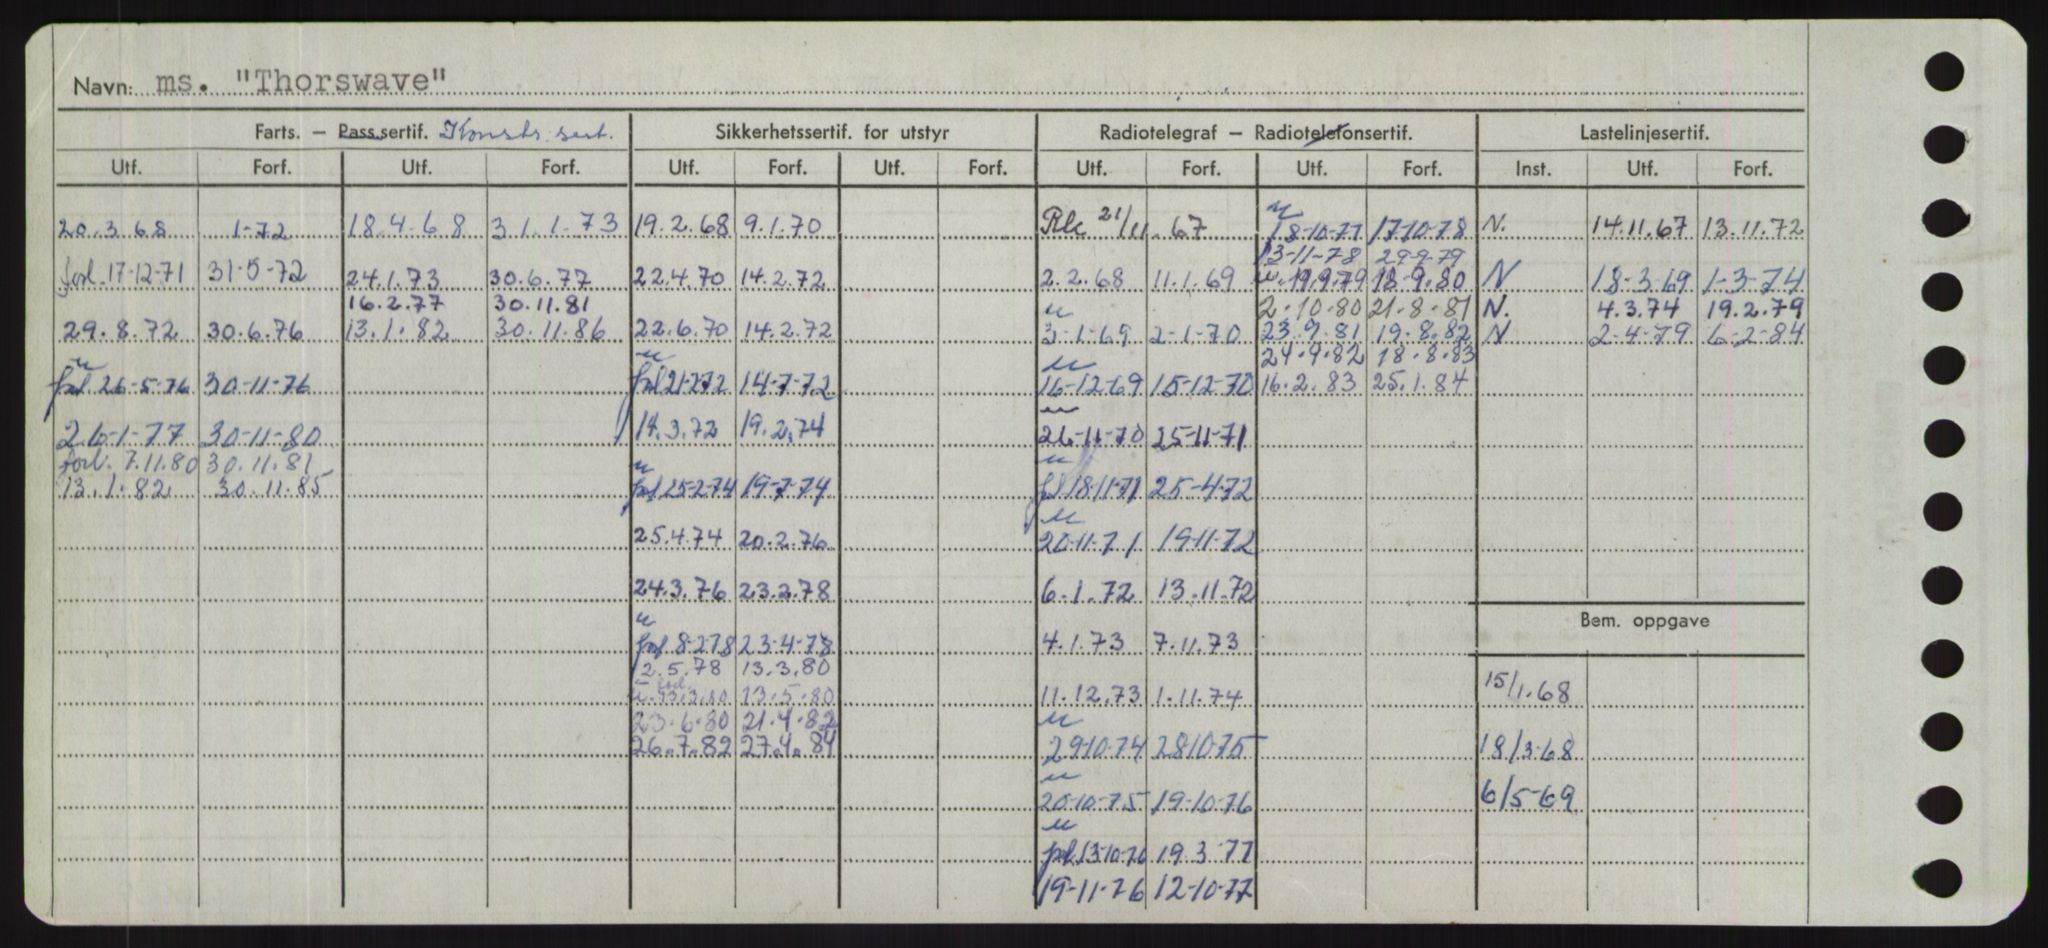 Navn: ms. "Thorswave"
Farts. – Pass.sertif. Konstr. sert. Sikkerhetssertif. for utstyr Radiotelegraf – Radiotelefonsertif. Lastelinjesertif.
Utf. Forf. Utf. Forf. Utf. Forf. Utf. Forf. Utf. Forf. Utf. Forf. Inst. Utf. Forf.
20.3.68 1-72 18.4.68 31.1.73 19.2.68 9.1.70 21/11.67 18-10-77 17-10-78 N. 14.11.67 13.11.72
13-11-78 29-9-79
forl. 17-12-71 31-5-72 24.1.73 30.6.77 22.4.70 14.2.72 2.2.68 11.1.69 u. 19.9.79 18-9.80 N 18-3-69 1-3-74
16.2.77 30.11.81 u 2.10.80 21-8-81 N. 4.3.74 19.2.79
29.8.72 30.6.76 13.1.82 30.11.86 22.6.70 14.2.72 3-1-69 2-1-70 23.9.81 19.8.82 N 2-4-79 6-2-84
u u u 24.9.82 18.8.83
forl 26-5-76 30-11-76 forl 21-2-72 14-7-72 16-12-69 15-12-70 16.2.83 25.1.84
26-1-77 30-11-80 14.3.72 19.2.74 u 26-11-70 25-11-71
forl. 7.11.80 30.11.81 u u
13.1.82 30.11.85 forl 25-2-74 19-7-74 forl 18-11-71 25-4-72
u
25.4.74 20.2.76 20-11-71 19-11-72
24.3.76 23.2.78 6.1.72 13.11.72
Bem. oppgave
u
forl 8-2-78 23-4-78 4.1.73 7.11.73
2.5.78 13.3.80
u. forl. 13.3.80 13.5.80 11.12.73 1.11.74 15/1.68
23.6.80 21.4.82 u
26.7.82 27.4.84 29-10-74 28-10-75 18/3-68
u
20-10-75 19-10-76 6/5-69
u
forl 13-10-76 19.3.77
19-11-76 12-10-77